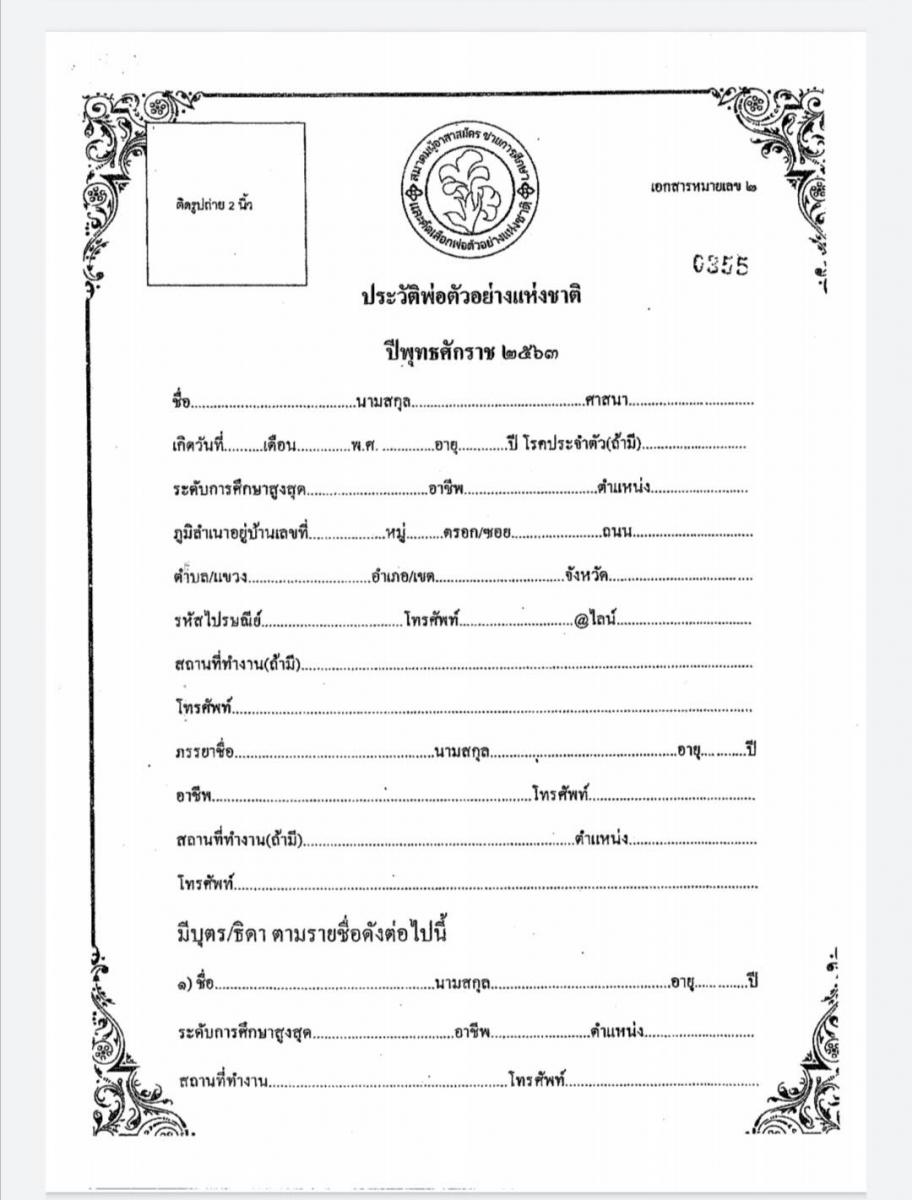 สมาคมผู้อาสาสมัคร ช่วยการศึกษา
และคัดเลือกพ่อตัวอย่างแห่งชาติ
ติดรูปถ่าย 2 นิ้ว
เอกสารหมายเลข ๒
0355
ประวัติพ่อตัวอย่างแห่งชาติ
ปีพุทธศักราช ๒๕๖๓
ชื่อ....................................นามสกุล......................................ศาสนา............................
เกิดวันที่.........เดือน.............พ.ศ. ............อายุ...........ปี โรคประจำตัว(ถ้ามี).......................
ระดับการศึกษาสูงสุด...........................อาชีพ.............................ตำแหน่ง.....................
ภูมิลำเนาอยู่บ้านเลขที่.................หมู่........ตรอก/ซอย....................ถนน..........................
ตำบล/แขวง...........................อำเภอ/เขต............................จังหวัด...............................
รหัสไปรษณีย์...............................โทรศัพท์.........................@ไลน์.............................
สถานที่ทำงาน(ถ้ามี)....................................................................................................
โทรศัพท์...................................................................................................................
ภรรยาชื่อ............................................นามสกุล.........................................อายุ..........ปี
อาชีพ......................................................................โทรศัพท์.....................................
สถานที่ทำงาน(ถ้ามี)............................................................ตำแหน่ง............................
โทรศัพท์...................................................................................................................
มีบุตร/ธิดา ตามรายชื่อดังต่อไปนี้
๑) ชื่อ................................................นามสกุล.......................................อายุ............ปี
ระดับการศึกษาสูงสุด...............................อาชีพ......................ตำแหน่ง.........................
สถานที่ทำงาน.....................................................โทรศัพท์...........................................